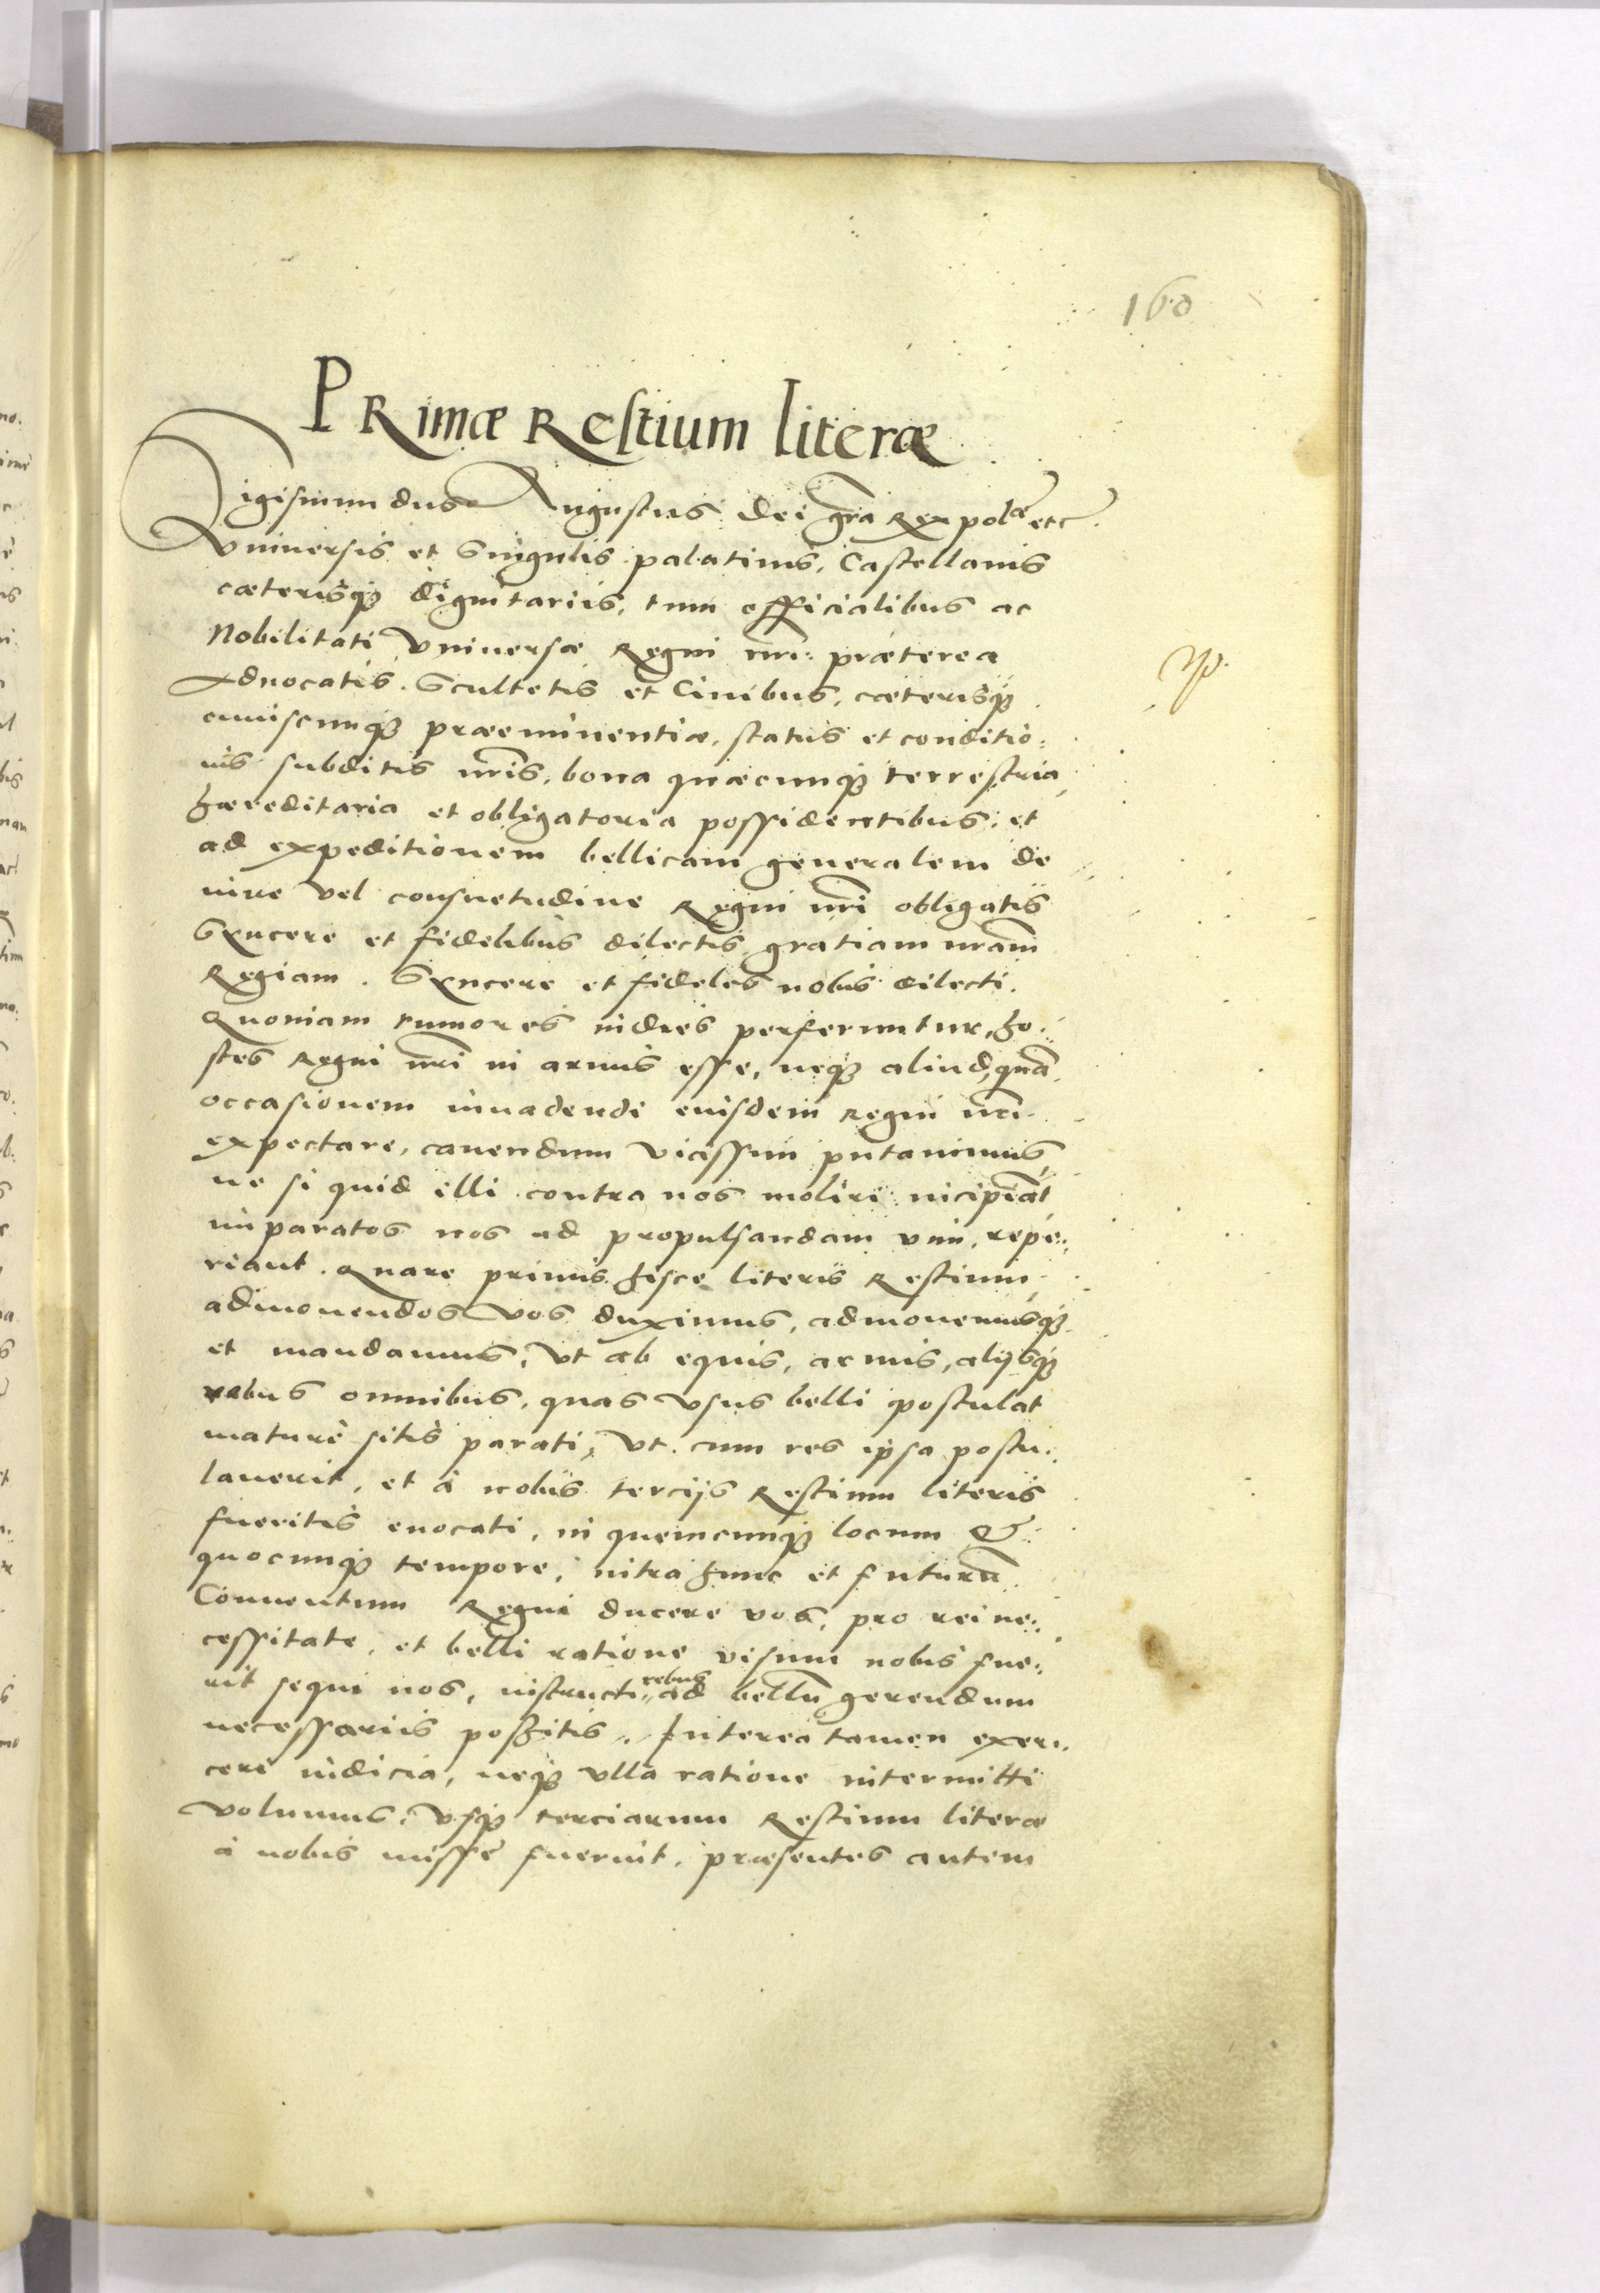 160
PRimæ Restium literæ
Sigismundus Augustus Dei grā Rex polæ etc.
Vniuersis et Singulis palatinis, Castellanis
cæterisq3 dignitariis, tum officialibus ac
Nobilitati Vniuersæ Regni nri: præterea
Aduocatis. Scultetis et Ciuibus, cæterisq3
cuiuscunq3 præeminentiæ, status et conditio:
nis subditis nris, bona quæcunq3 terrestria
hæreditaria et obligatoria possidentibus, et
ad expeditionem bellicam generalem de
iure vel consuetudine Regni nri obligatis
Syncere et fidelibus dilectis gratiam nram
Regiam. Syncere et fideles nobis dilecti.
Quoniam rumores indies perferuntur, ho:
stes Regni nri in armis esse, neq3 aliud, quā
occasionem inuadendi eiusdem regni nri
expectare, cauendum vicissim putauimus,
ne si quid illi contra nos moliri incipiāt
imparatos nos ad propulsandam vim, repe:
riant. Quare primis hisce literis Restium,
admonendos vos duximus, admonemusq3
et mandamus, Vt ab equis, armis, alijsq3
rebus omnibus, quas vsus belli postulat
maturè sitis parati, Vt. cum res ipsa postu:
lauerit, et à nobis tercijs Restium literis
fueritis euocati, in quemcunq3 locum &
quocunq3 tempore, intra hunc et futurū
Conuentum Regni ducere vos, pro rei ne:
cessitate, et belli ratione visum nobis fue:
rit sequi nos, instructi rebus ad bellū gerendum
necessariis possitis. Interea tamen exer:
ceri iudicia, neq3 vlla ratione intermitti
volumus, Vsq3 terciarum Restium literæ
à nobis missæ fuerint. præsentes autem